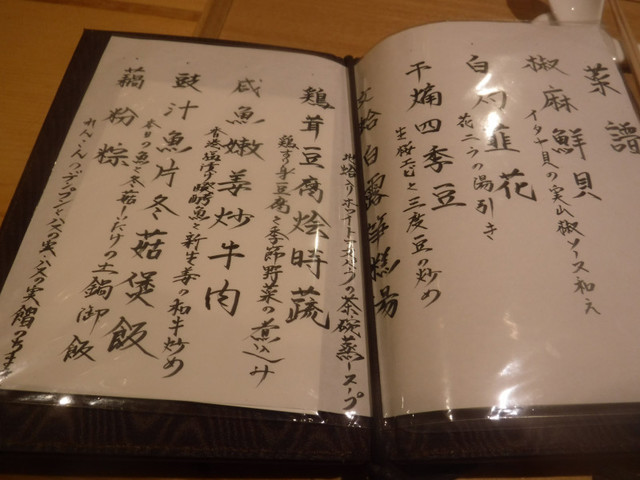 菜譜
椒麻鮮貝
イタヤ貝の実山椒ソース和え
白灼韮花
花ニラの湯引き
干煸四季豆
生桜エビと三度豆の炒め
文蛤白露
湯
地蛤入りホワイト
の茶碗蒸スープ
鶏茸豆腐烩時蔬
鶏すり身豆腐と季節野菜の煮込み
咸魚嫩姜炒牛肉
香港塩漬け
魚と新生姜の和牛炒め
豉汁魚片冬菇煲飯
本日の魚と冬菇
たけの土鍋御飯
藕粉粽
れんこんのデンプンとハスの実、ハスの実餡のちま